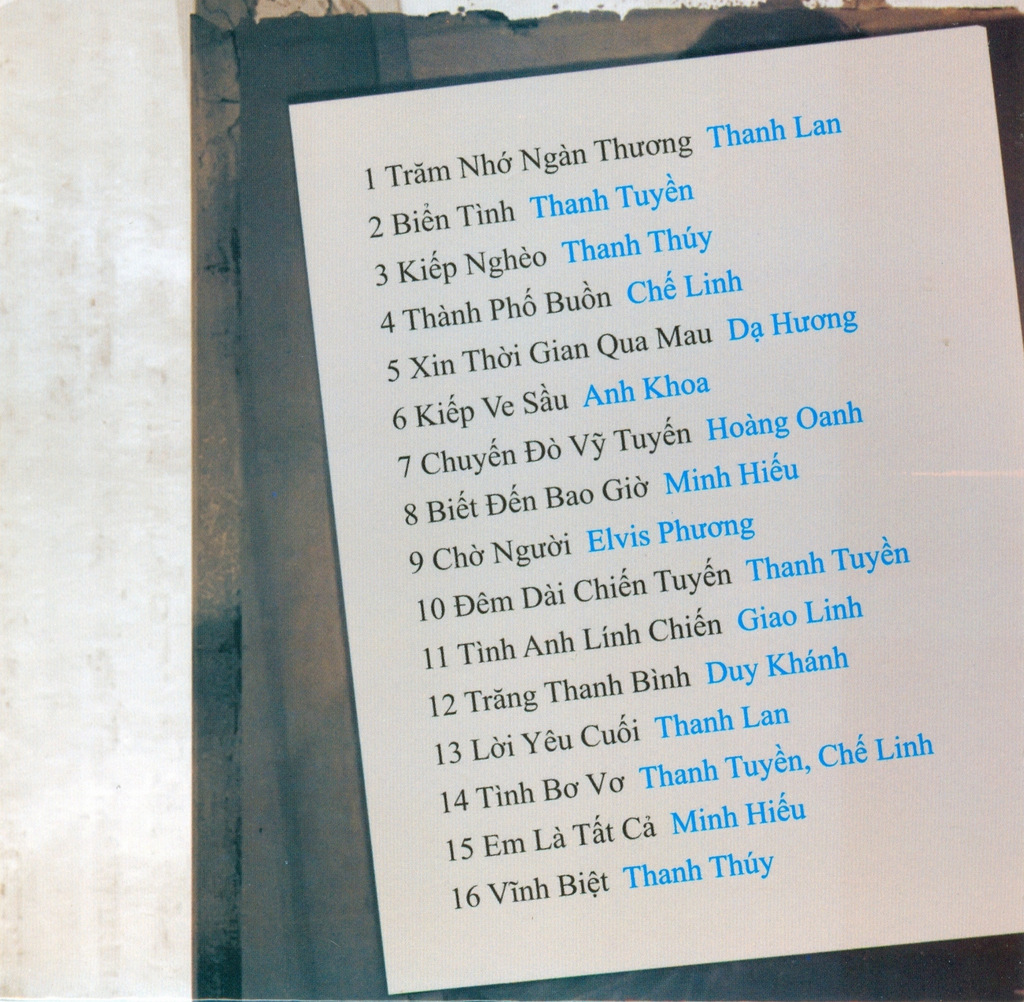 1 Trăm Nhớ Ngàn Thương Thanh Lan
2 Biển Tình Thanh Tuyền
3 Kiếp Nghèo Thanh Thúy
4 Thành Phố Buồn Chế Linh
5 Xin Thời Gian Qua Mau Dạ Hương
6 Kiếp Ve Sầu Anh Khoa
7 Chuyến Đò Vỹ Tuyến Hoàng Oanh
8 Biết Đến Bao Giờ Minh Hiếu
9 Chờ Người Elvis Phương
10 Đêm Dài Chiến Tuyến Thanh Tuyền
11 Tình Anh Lính Chiến Giao Linh
12 Trăng Thanh Bình Duy Khánh
13 Lời Yêu Cuối Thanh Lan
14 Tình Bơ Vơ Thanh Tuyền, Chế Linh
15 Em Là Tất Cả Minh Hiếu
16 Vĩnh Biệt Thanh Thúy